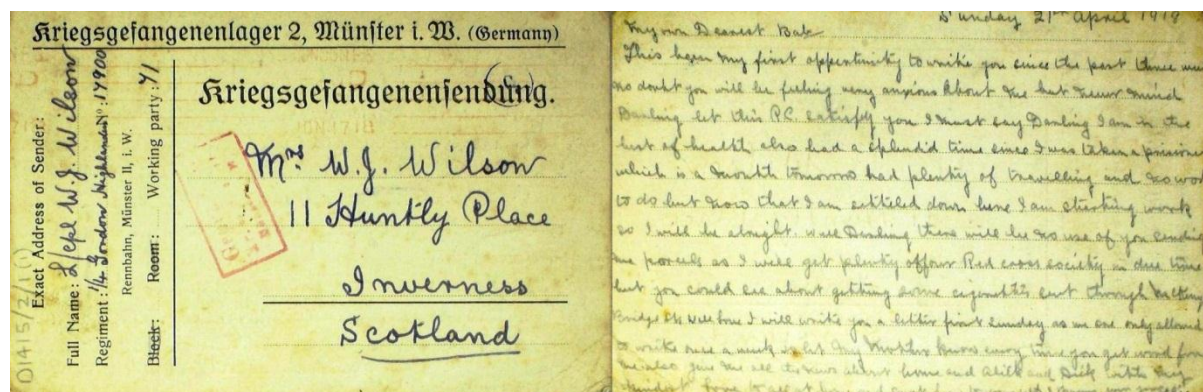 Kriegsgefangenenlager 2, Münster i. W. (Germany)
Exact Address of Sender:
Full Name: L/Cpl W. J. Wilson
Regiment: 1/4 Gordon Highlanders Nº 17900
Rennbahn, Münster II, i. W.
Block: Room: Working party: 71
D1415/2/1(1)
Kriegsgefangenensendung.
Mrs W. J. Wilson
11 Huntly Place
Inverness
Scotland
Sunday 21st April 1918
My own Dearest Bab
This been my first oppertunity to write you since the past three
no doubt you will be feeling very anxious about me but never mind
Darling let this P.C. satisfy you I must say Darling I am in the
best of health also had a splendid time since I was taken a prisoner
which is a month tomorrow had plenty of travelling and no work
to do but now that I am settled down here I am starting work
so I will be alright. Well Darling there will be no use of you sending
me parcels as I will get plenty off our Red cross society in due time
but you could see about getting some out through
Bridge St. Well love I will write you a letter first Sunday as we are only allowed
to write once a week so let my Mother know every time you get word from
me also give me all the news about home and and Dick with my
love to all at